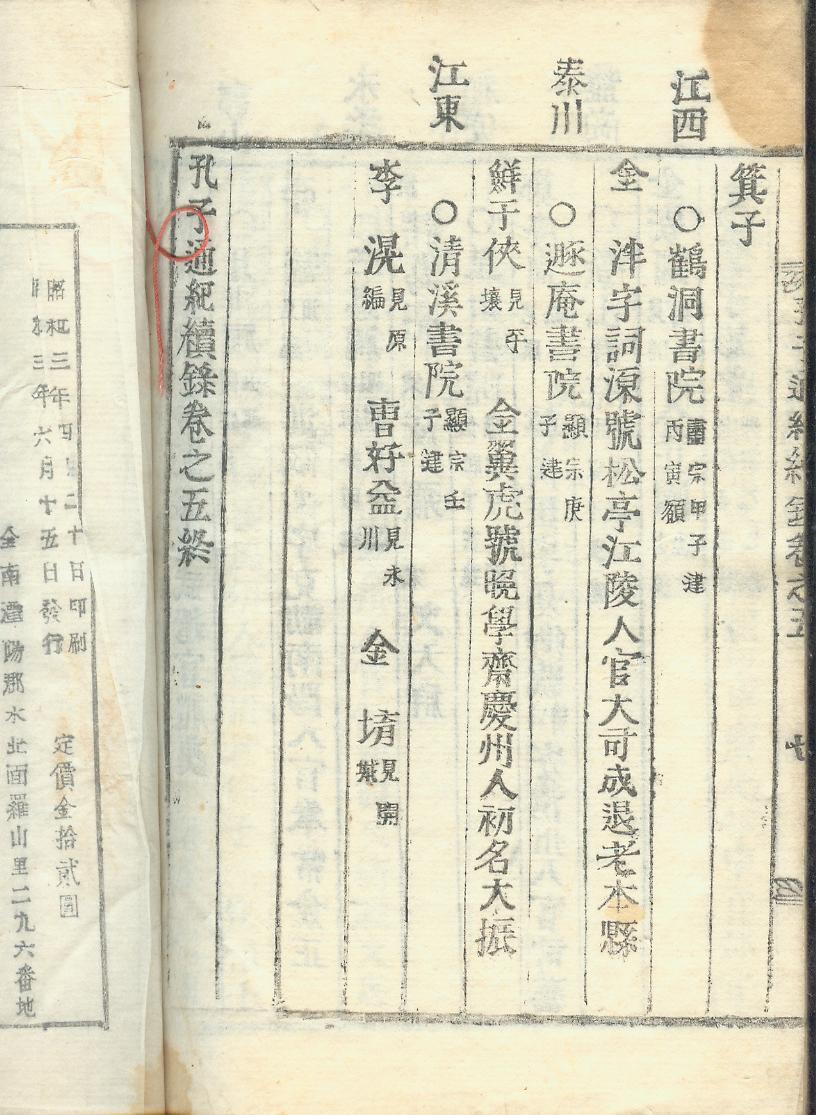 箕子
江西
○鶴洞書院 肅宗甲子建
丙寅額
金泮字詞源號松亭江陵人官大司成退老本縣
泰川
○遯庵書院 顯宗庚
子建
鮮于俠 見平
壤 金翼虎號晩學齋慶州人初名大振
江東
○清溪書院 顯宗壬
子建
李滉 見原
編 曺好益 見永
川 金堉 見開
城
孔子通紀續錄卷之五終
孔子通紀續錄卷之五 七
昭和三年四月二十日印刷
昭和三年六月十五日發行
定價金拾貳圓
全南潭陽郡水北面羅山里二九六番地